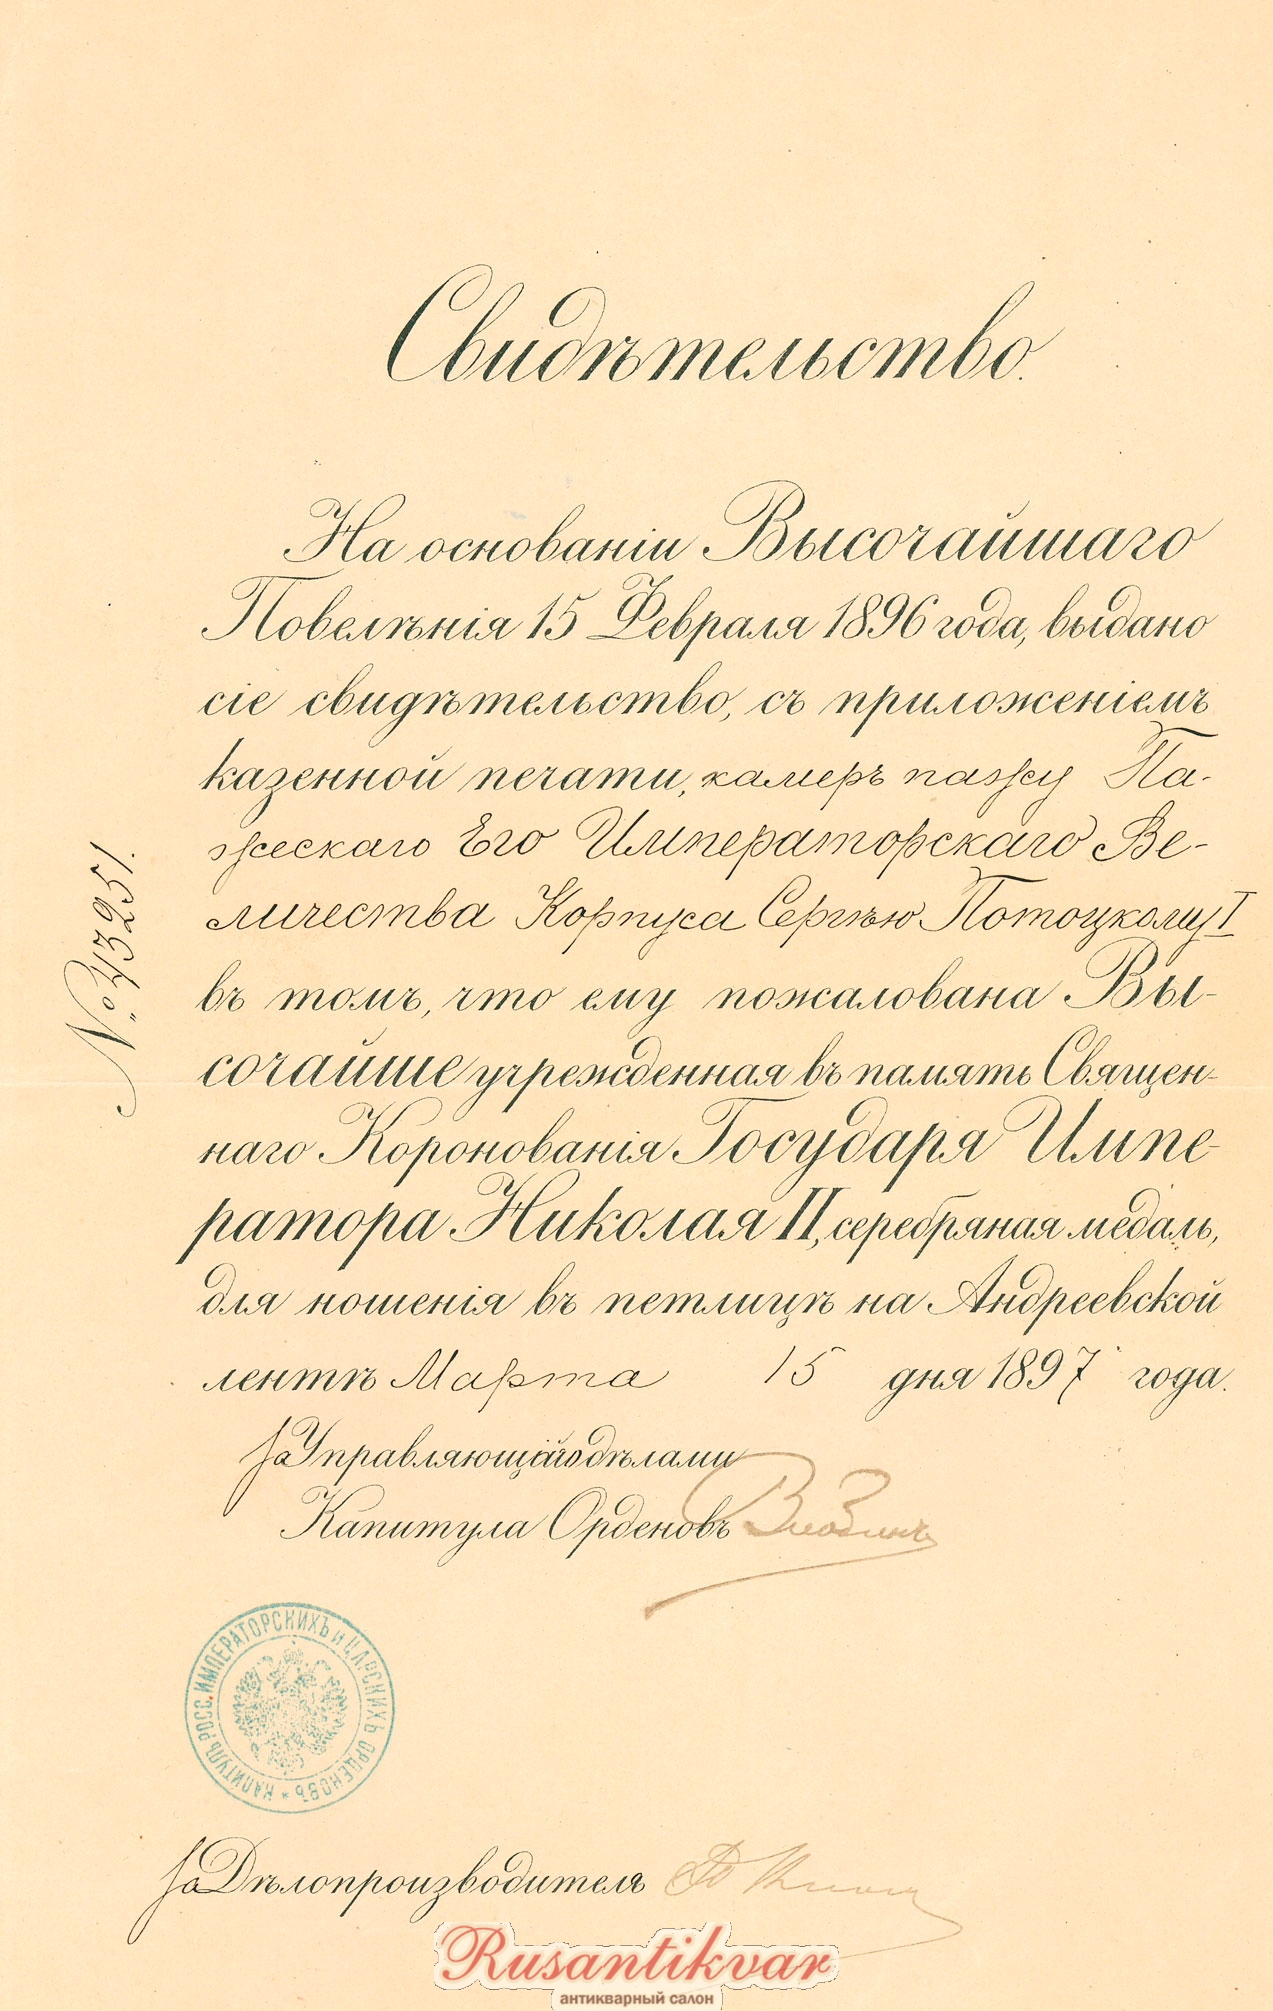 Свидѣтельство.
На основаніи Высочайшаго
Повелѣнія 15 Февраля 1896 года, выдано
сіе свидѣтельство, съ приложеніемъ
казенной печати, камеръ пажу Па-
жескаго Его Императорскаго Ве-
личества Корпуса Сергѣю Потоцкому I
въ томъ, что ему пожалована Вы-
сочайше учрежденная въ память Священ-
наго Коронованія Государя Импе-
ратора Николая II, серебряная медаль,
для ношенія въ петлицѣ на Андреевской
лентѣ Марта 15 дня 1897 года.
№ 43251.
За Управляющаго дѣлами
Капитула Орденовъ
КАПИТУЛЪ РОСС. ИМПЕРАТОРСКИХЪ И ЦАРСКИХЪ ОРДЕНОВЪ *
За Дѣлопроизводителя
Rusantikvar
антикварный салон